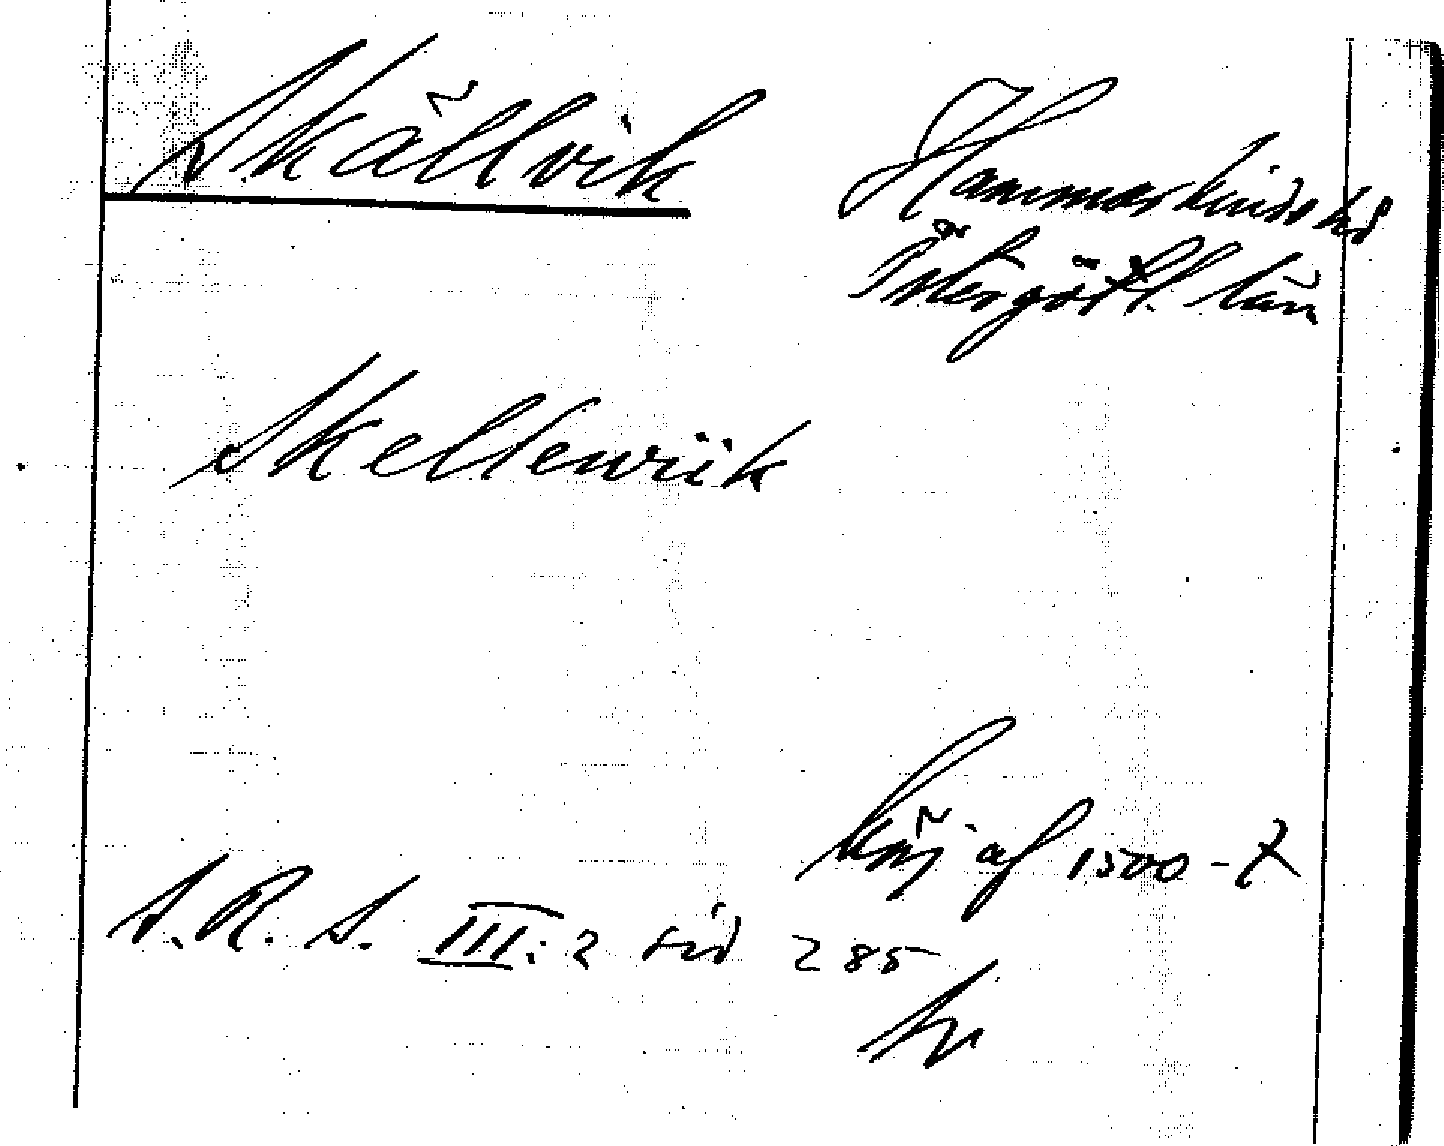 Skällvik
Hammarkinds hd
Östergötl. län
Skellenwiik
början af 1500-t
S. R. S. III: 2 sid 285